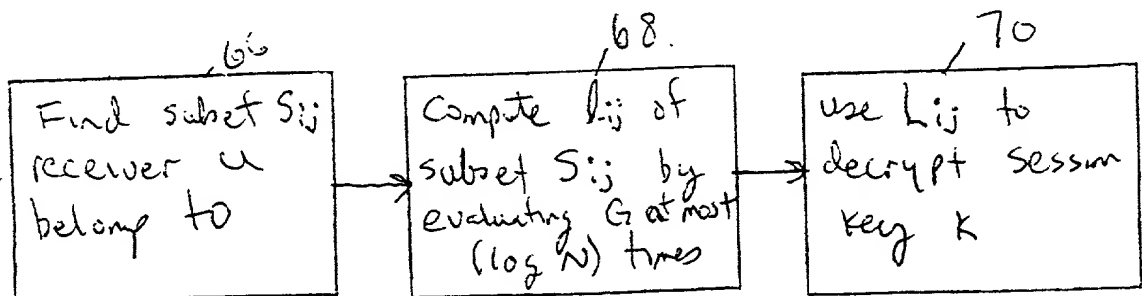 66
Find subset Sij
receiver u
belong to
68.
Compute Lij of
subset Sij by
evaluating G at most
(log N) times
70
use Lij to
decrypt session
key K